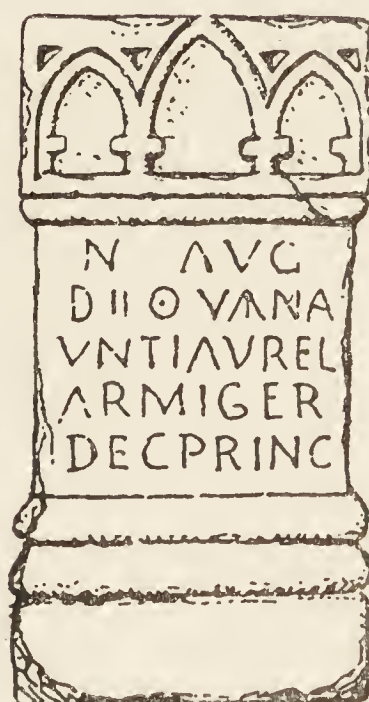 N AVG
DIIOVANA
VNTIAVREL
ARMIGER
DECPRINC